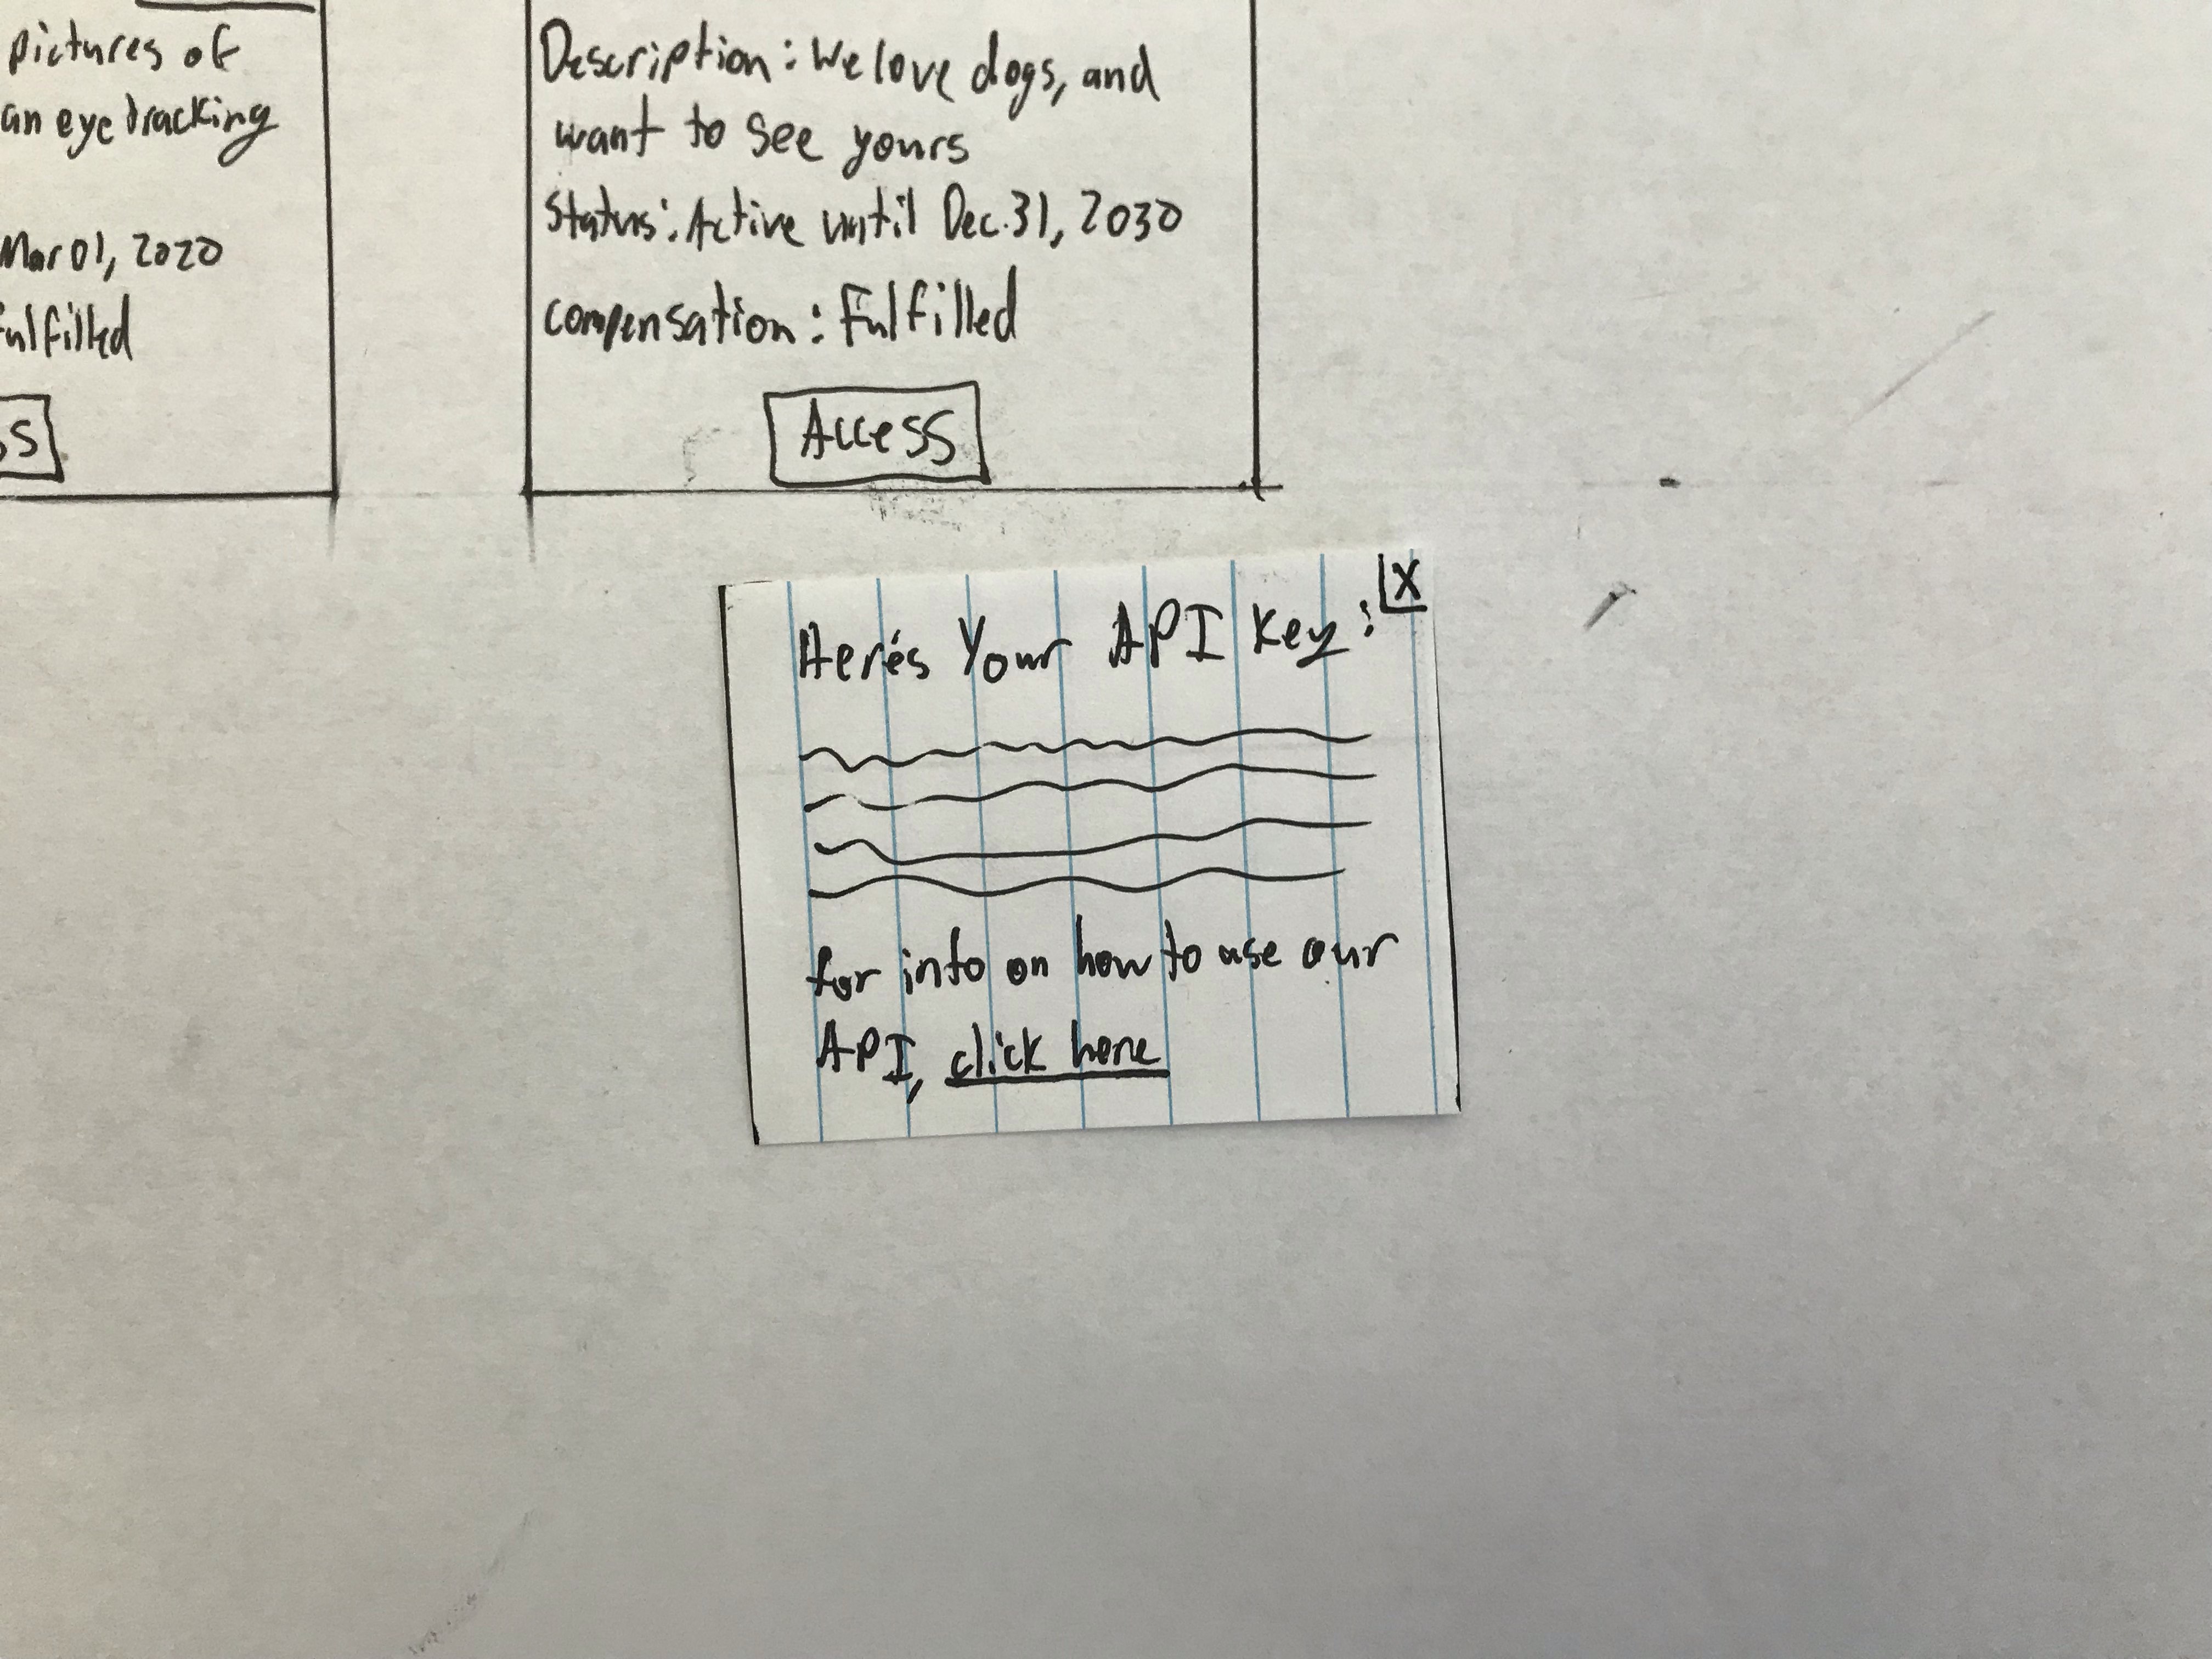 pictures of
an eye tracking
Mar 01, 2020
fulfilled
Description: We love dogs, and
want to see yours
Status: Active until Dec. 31, 2030
compensation: Fulfilled
Access
X
Here's Your API Key:
for info on how to use our
API, click here